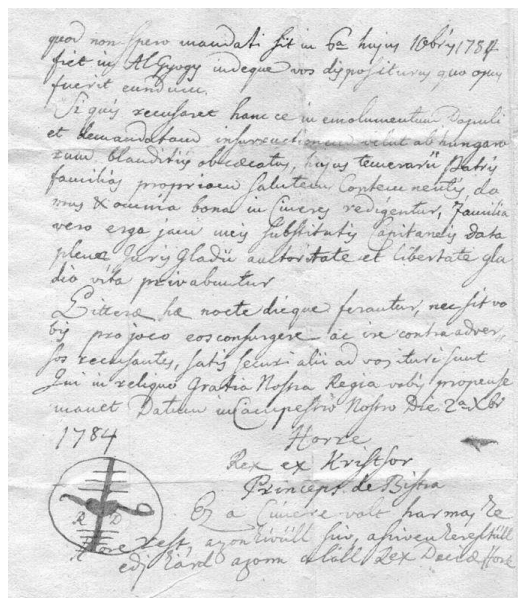 quod non spero mandati sit in 6a hujus 10bris 1784
fiet in AlGyogy indeque vos dispositurus quo opus
fuerit eundum.
Si quis recusaret hancce in emolumentum Populi
et demandatam insurrectionem velut ab hungaro
rum blanditiis obcaecatus, hujus temerarii Patris
familias propriam salutem Contemnentis do
mus & omnia bona in Cineres redigentur, Familia
vero erga jam meis substitutis Capitaneis data
plenae Juris Gladii autoritate et libertate gla
dio vita privabuntur
Litterae hae nocte dieque ferantur, nec sit vo
bis pro joco eos consurgere ac ire contra adver,,
sos recusantes, satis securi alii ad vos ituri sunt
Qui in reliquo Gratia Nostra Regia vobis propense
manet Datum in Campestrio Nostro Die 2a Xbr
1784
Horre
Rex ex Kristsor
Princeps de Bistra
R D
Ez a Cimere volt harmas ke
kereszt, azon kivüll sziv, a sziven keresztüll
edj kard azom alúll Rex Daciae Hore